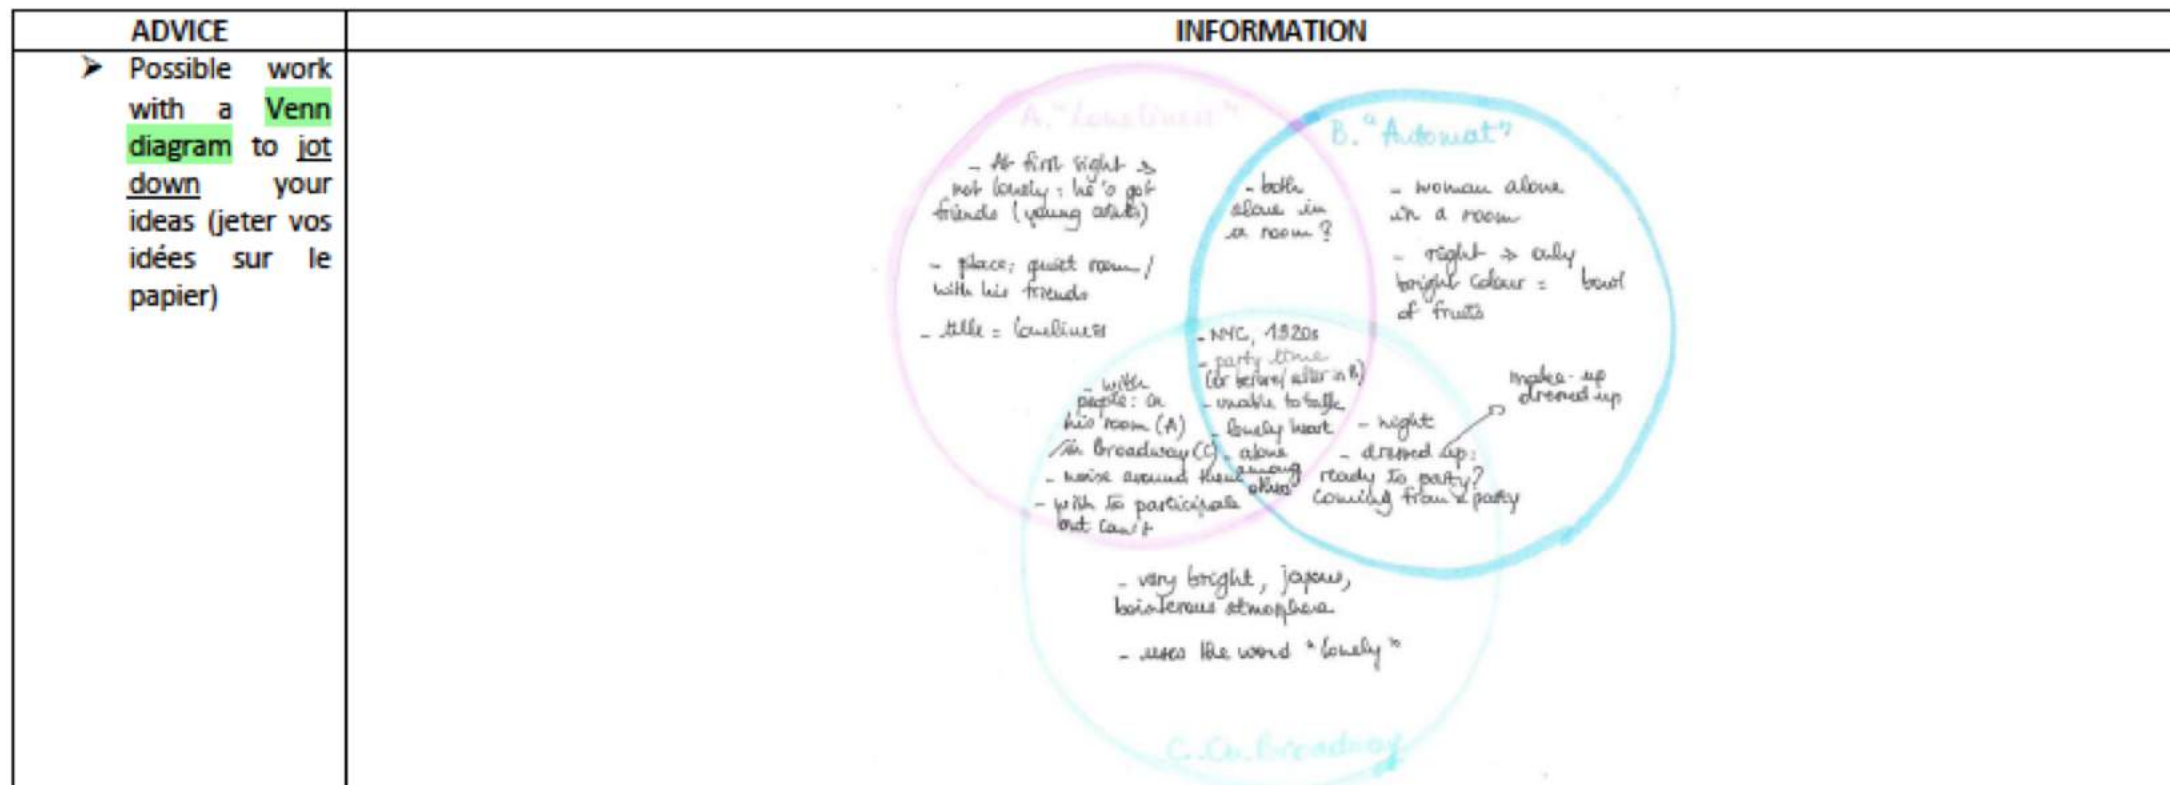 ADVICE
INFORMATION
➤ Possible work
with a Venn
diagram to jot
down your
ideas (jeter vos
idées sur le
papier)
A. "Loneliness"
- At first sight →
not lonely : he's got
friends (young artists)
- place: quiet room /
with his friends
- title = loneliness
- both
alone in
a room ?
B. "Automat"
- woman alone
in a room
- night → only
bright colour = bowl
of fruits
- NYC, 1920s
- party time
(or before/after in B)
- unable to talk
- lonely heart
- alone
among
others
- with
people: in
his room (A)
/in Broadway (C)
- noise around them
- wish to participate
but can't
make-up
dressed up
- night
- dressed up:
ready to party?
coming from a party
- very bright, joyous,
boisterous atmosphere
- uses the word "lonely"
C. On Broadway